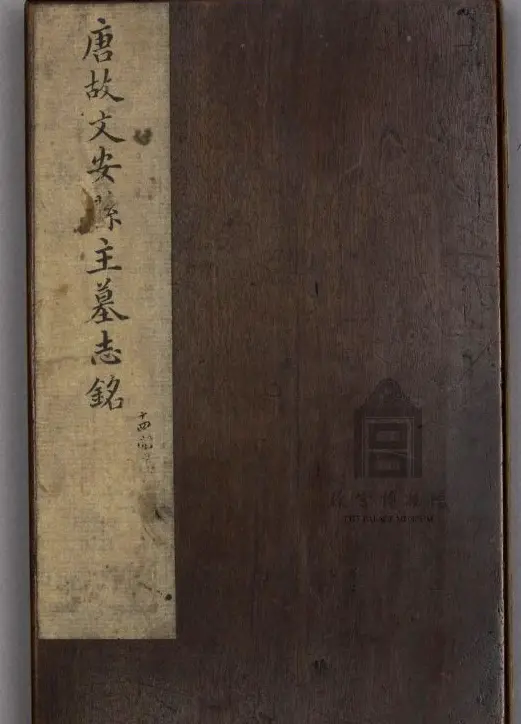 唐故文安縣主墓志銘
故宮博物院
THE PALACE MUSEUM